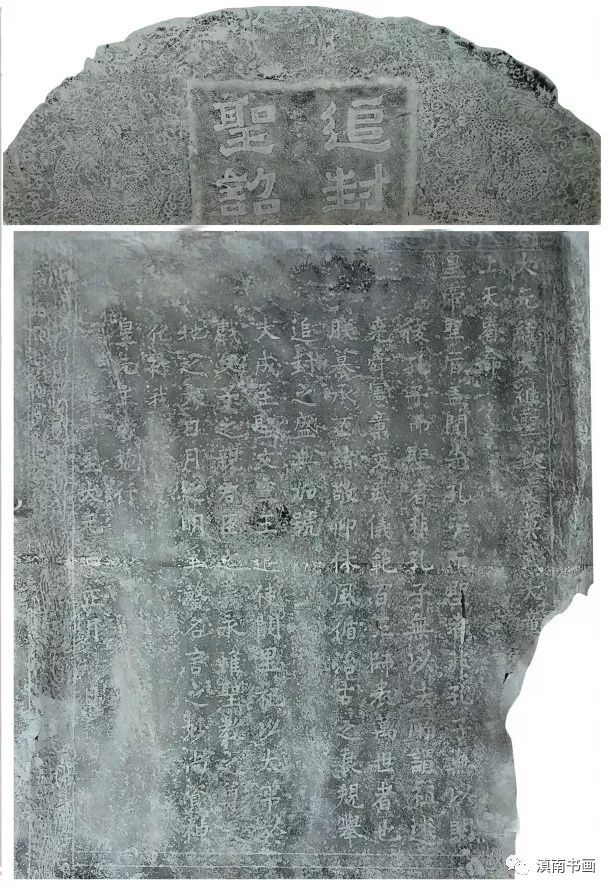 追封
聖詔
大元
上天眷命
皇帝聖旨盖聞先孔子而聖者非孔子無以明
後孔子而聖者非孔子無以法所謂祖述
堯舜憲章文武儀範百王師表萬世者也
朕纂承丕緒敬仰休風循治古之良規舉
追封之盛典加號
大成至聖文宣王遣使闕里祀以太牢於
戲父子之親君臣之 永惟聖教之尊天
地之大日月之明奚罄名言之妙尚資神
化祚我
皇元主者施行
至大元年正月
滇南书画